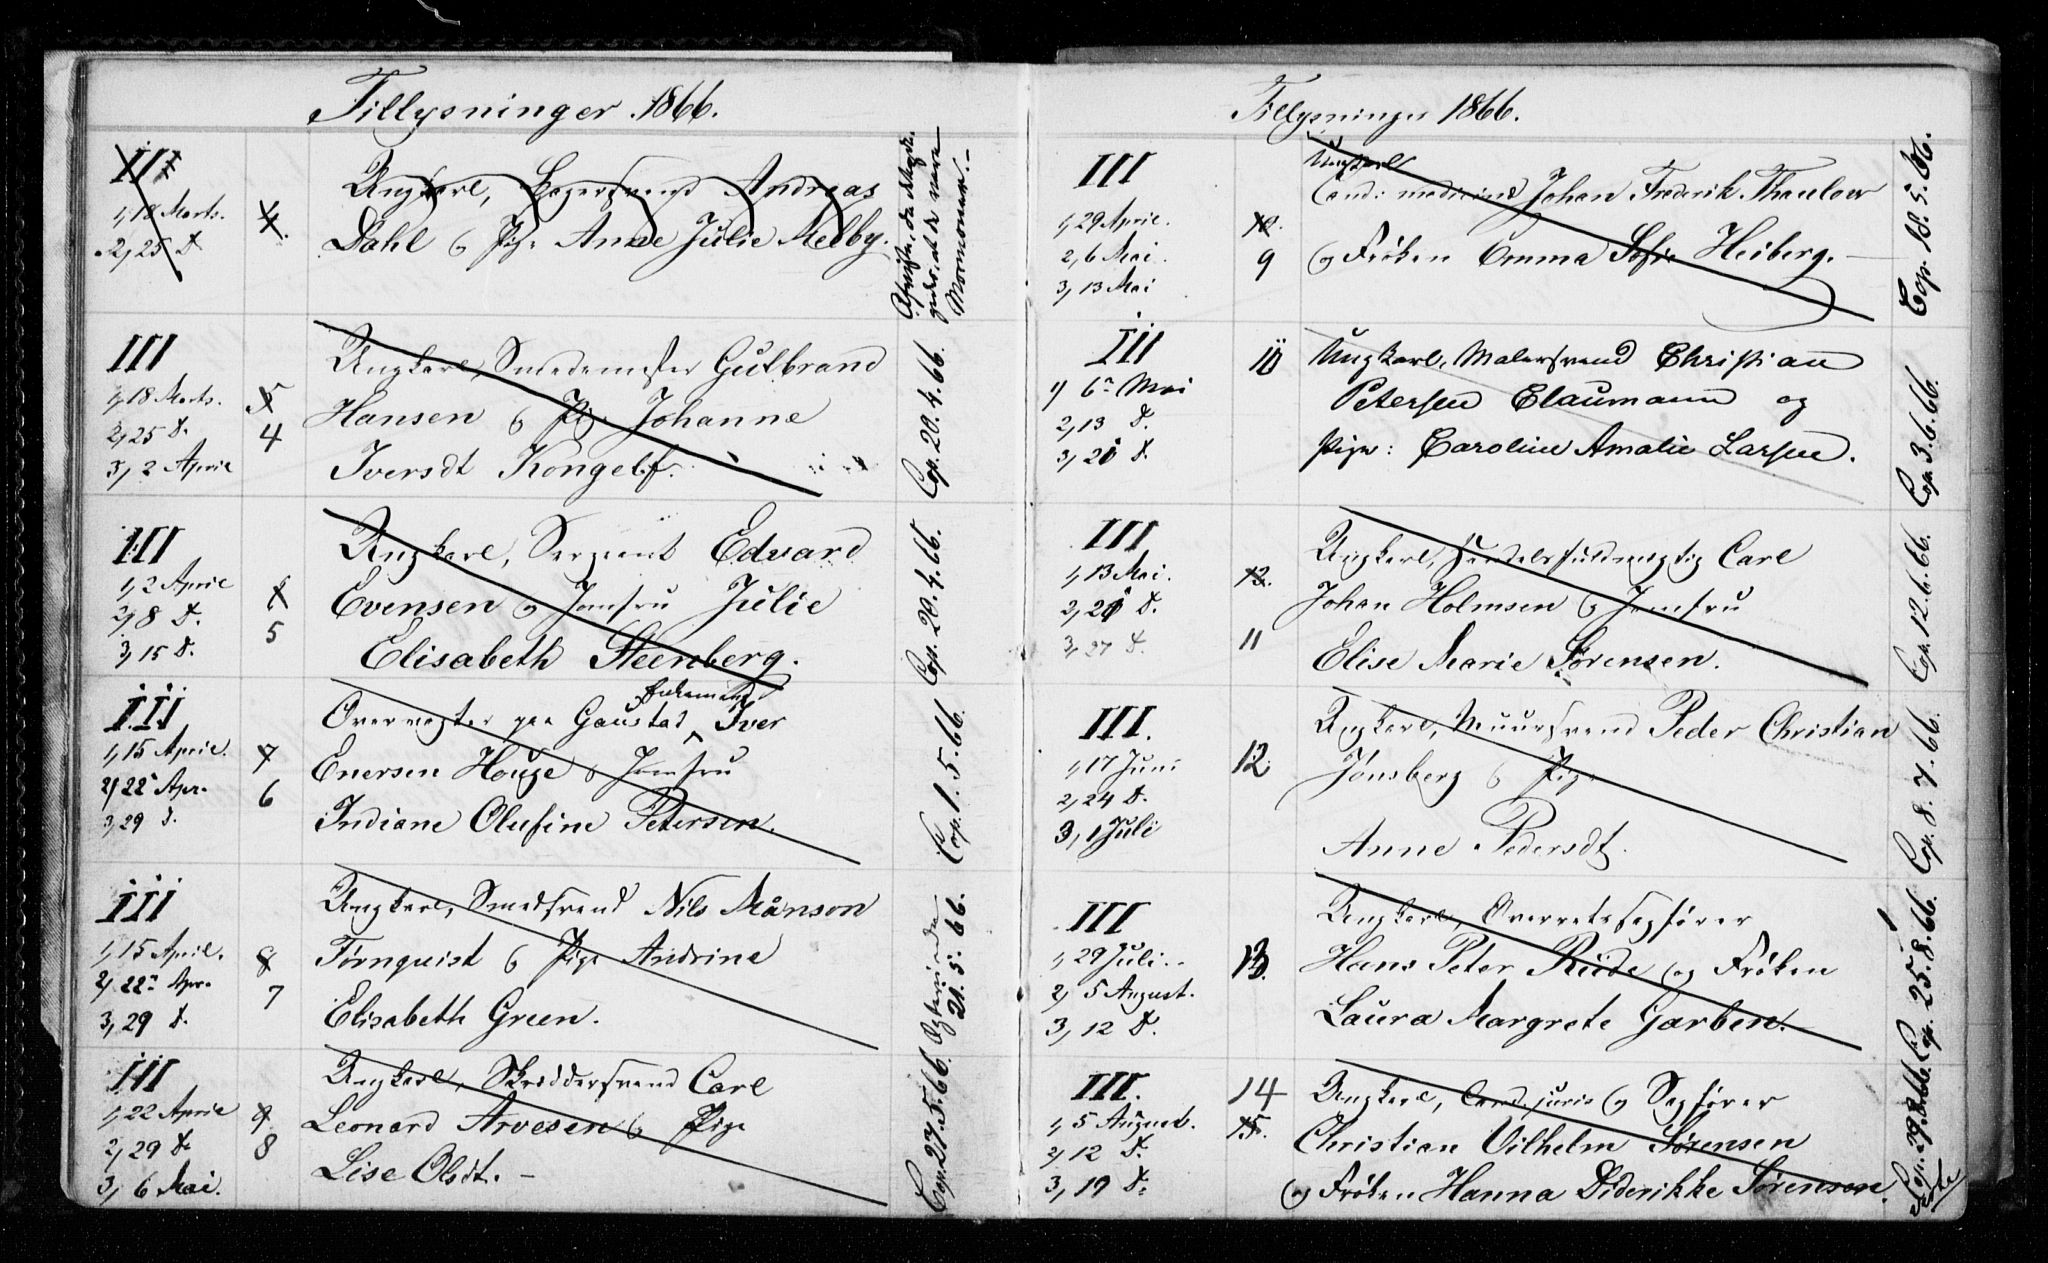 Tillysninger 1866.
III
1, 18 Marts.
2, 25 D.
4.
Ungkarl, Bagersvend Andreas
Dahl & Pige Anne Julie Melby.
at de vare
Mormoner.
III
1, 18 Marts.
2, 25 D.
3, 2 April
5
4
Ungkarl, Smedemester Gulbrand
Hansen & Pige Johanne
Iversdt Kongelf.
Cop. 20. 4. 66.
III
1, 2 April
2, 8 D.
3, 15 D.
6
5
Ungkarl, Sergeant Edvard
Evensen & Jomfru Julie
Elisabeth Steenberg.
Cop. 20. 4. 66.
III
1, 15 April.
2, 22 Apr.
3, 29 D.
7
6
Enkemand,
Overvogter paa Gaustad Iver
Enersen Houge & Jomfru
Indiane Olufine Petersen.
Cop. 1. 5. 66.
III
1, 15 April.
2, 22 Apr.
3, 29 D.
8
7
Ungkarl, Smedsvend Nils Månson
Tørnquist & Pige Andrine
Elisabeth Green.
21. 5. 66.
III
1, 22 April
2, 29 D.
3, 6 Mai.
9
8
Ungkarl, Skräddersvend Carl
Leonard Arvesen & Pige
Lise Olsdt. –
Cop. 27. 5. 66.
Tillysninger 1866.
III
1, 29 April.
2, 6 Mai.
3, 13 Mai
10.
9
Ungkarl
Cand: medicinæ Johan Fredrik Thaulow
og Frøken Emma Sofie Heiberg. –
Cop. 18. 5. 66.
III
1, 6 Mai
2, 13 D.
3, 20 D.
10
Ungkarl, Malersvend Christian
Petersen Claumann og
Pige: Caroline Amalie Larsen.
Cop. 3. 6. 66.
III
1, 13 Mai.
2, 20 D.
3, 27 D.
12.
11
Ungkarl, Handelsfuldmægtig Carl
Johan Holmsen & Jomfru
Elise Marie Sørensen.
Cop. 12. 6. 66.
III.
1, 17 Juni
2, 24 D.
3, 1 Juli
12
Ungkarl, Muursvend Peder Christian
Jonsberg & Pige
Anne Pedersdt.
Cop. 8. 7. 66.
III
1, 29 Juli.
2, 5 August.
3, 12 D.
13.
Ungkarl, Overretssagfører
Hans Peter Rude og Frøken
Laura Margrete Garben.
Cop. 25. 8. 66.
III.
1, 5 August.
2, 12 D.
3, 19 D.
14
15.
Ungkarl, Cand. juris og Sagfører
Christian Vilhelm Sørensen
og Frøken Hanna Diderikke Sørensen.
Cop. 29. 8. 66.